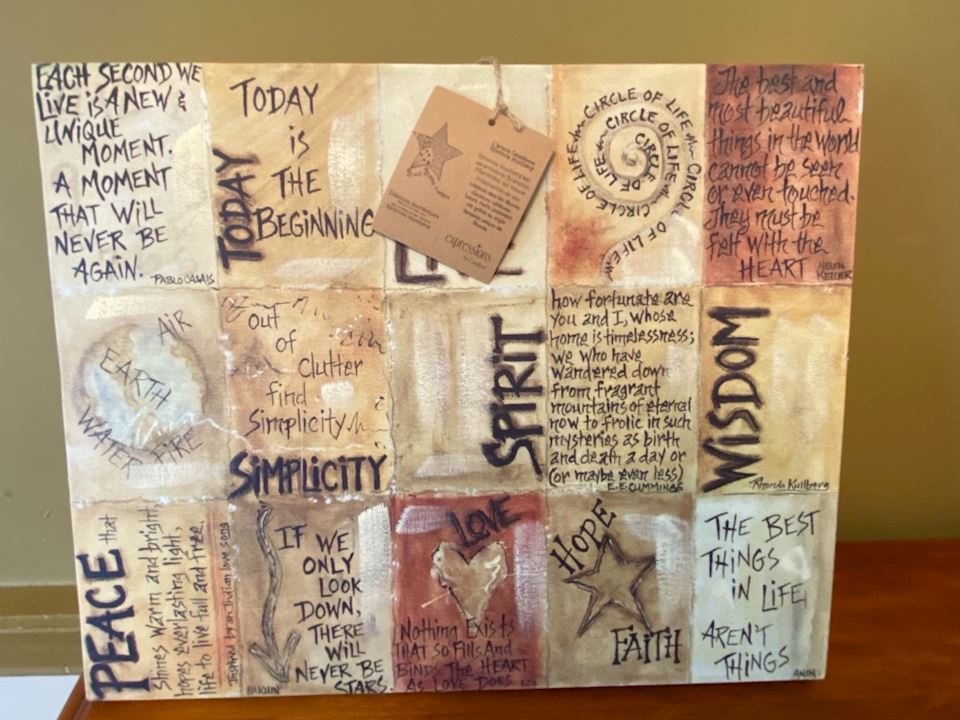 EACH SECOND WE
LIVE iS A NEW &
UNiQUE
MOMENT.
A MOMENT
THAT WiLL
NEVER BE
AGAiN.
PABLO CASALS
TODAY
TODAY
iS
THE
BEGiNNiNG
expressions
CiRCLE OF LIFE CIRCLE OF LIFE CIRCLE OF LIFE CIRCLE OF LIFE
The best and
most beautiful
things in the world
cannot be seen
or even touched.
They must be
felt with the
HEART
HELEN
KELLER
AiR
EARTH
WATER FIRE
out
of
clutter
find
Simplicity
SiMPLiCiTY
SPiRiT
how fortunate are
you and I, whose
home is timelessness;
we who have
wandered down
from fragrant
mountains of eternal
now to frolic in such
mysteries as birth
and death a day or
(or maybe even less)
E.E. CUMMINGS
WiSDOM
Kullberg
PEACE that
Shines warm and bright,
hopes everlasting light,
life to live full and free.
Inspired by an Indian love song
IF WE
ONLY
LOOK
DOWN,
THERE
WiLL
NEVER BE
STARS.
LOVE
NOTHiNG EXiSTS
THAT SO FiLLS AND
BiNDS THE HEART
AS LOVE DOES.
HOPE
FAiTH
THE BEST
THiNGS
iN LiFE
AREN'T
THiNGS
ANON